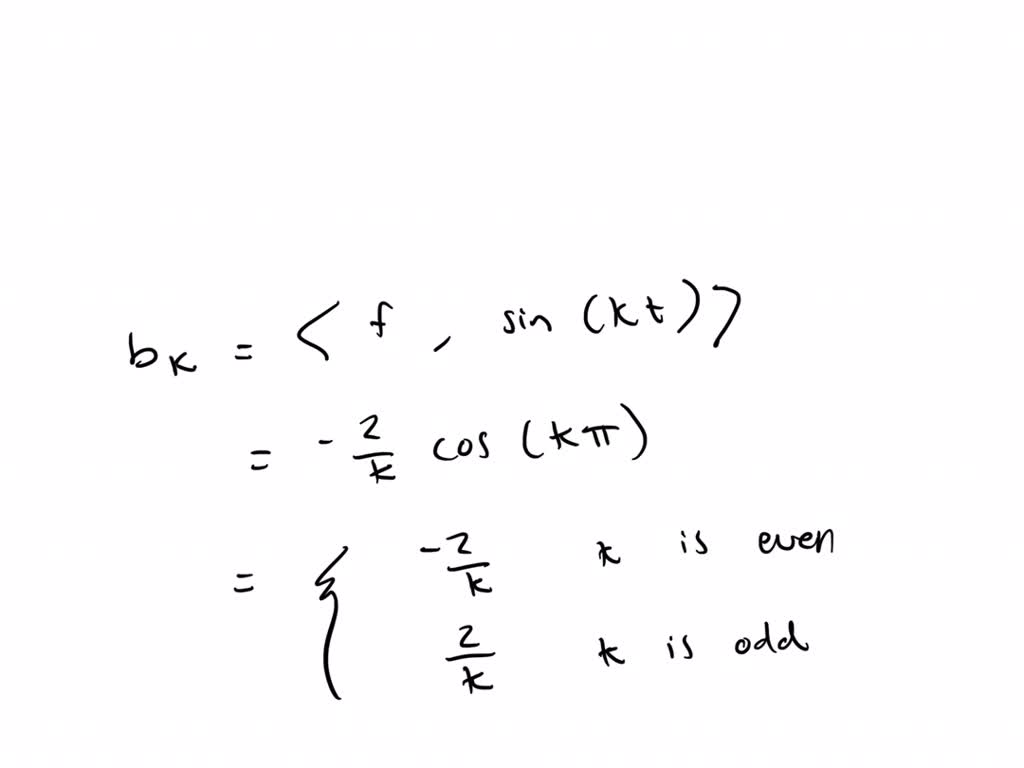 b_k = ⟨ f , sin (kt) ⟩
= - 2/k cos (kπ)
= { -2/k k is even
2/k k is odd